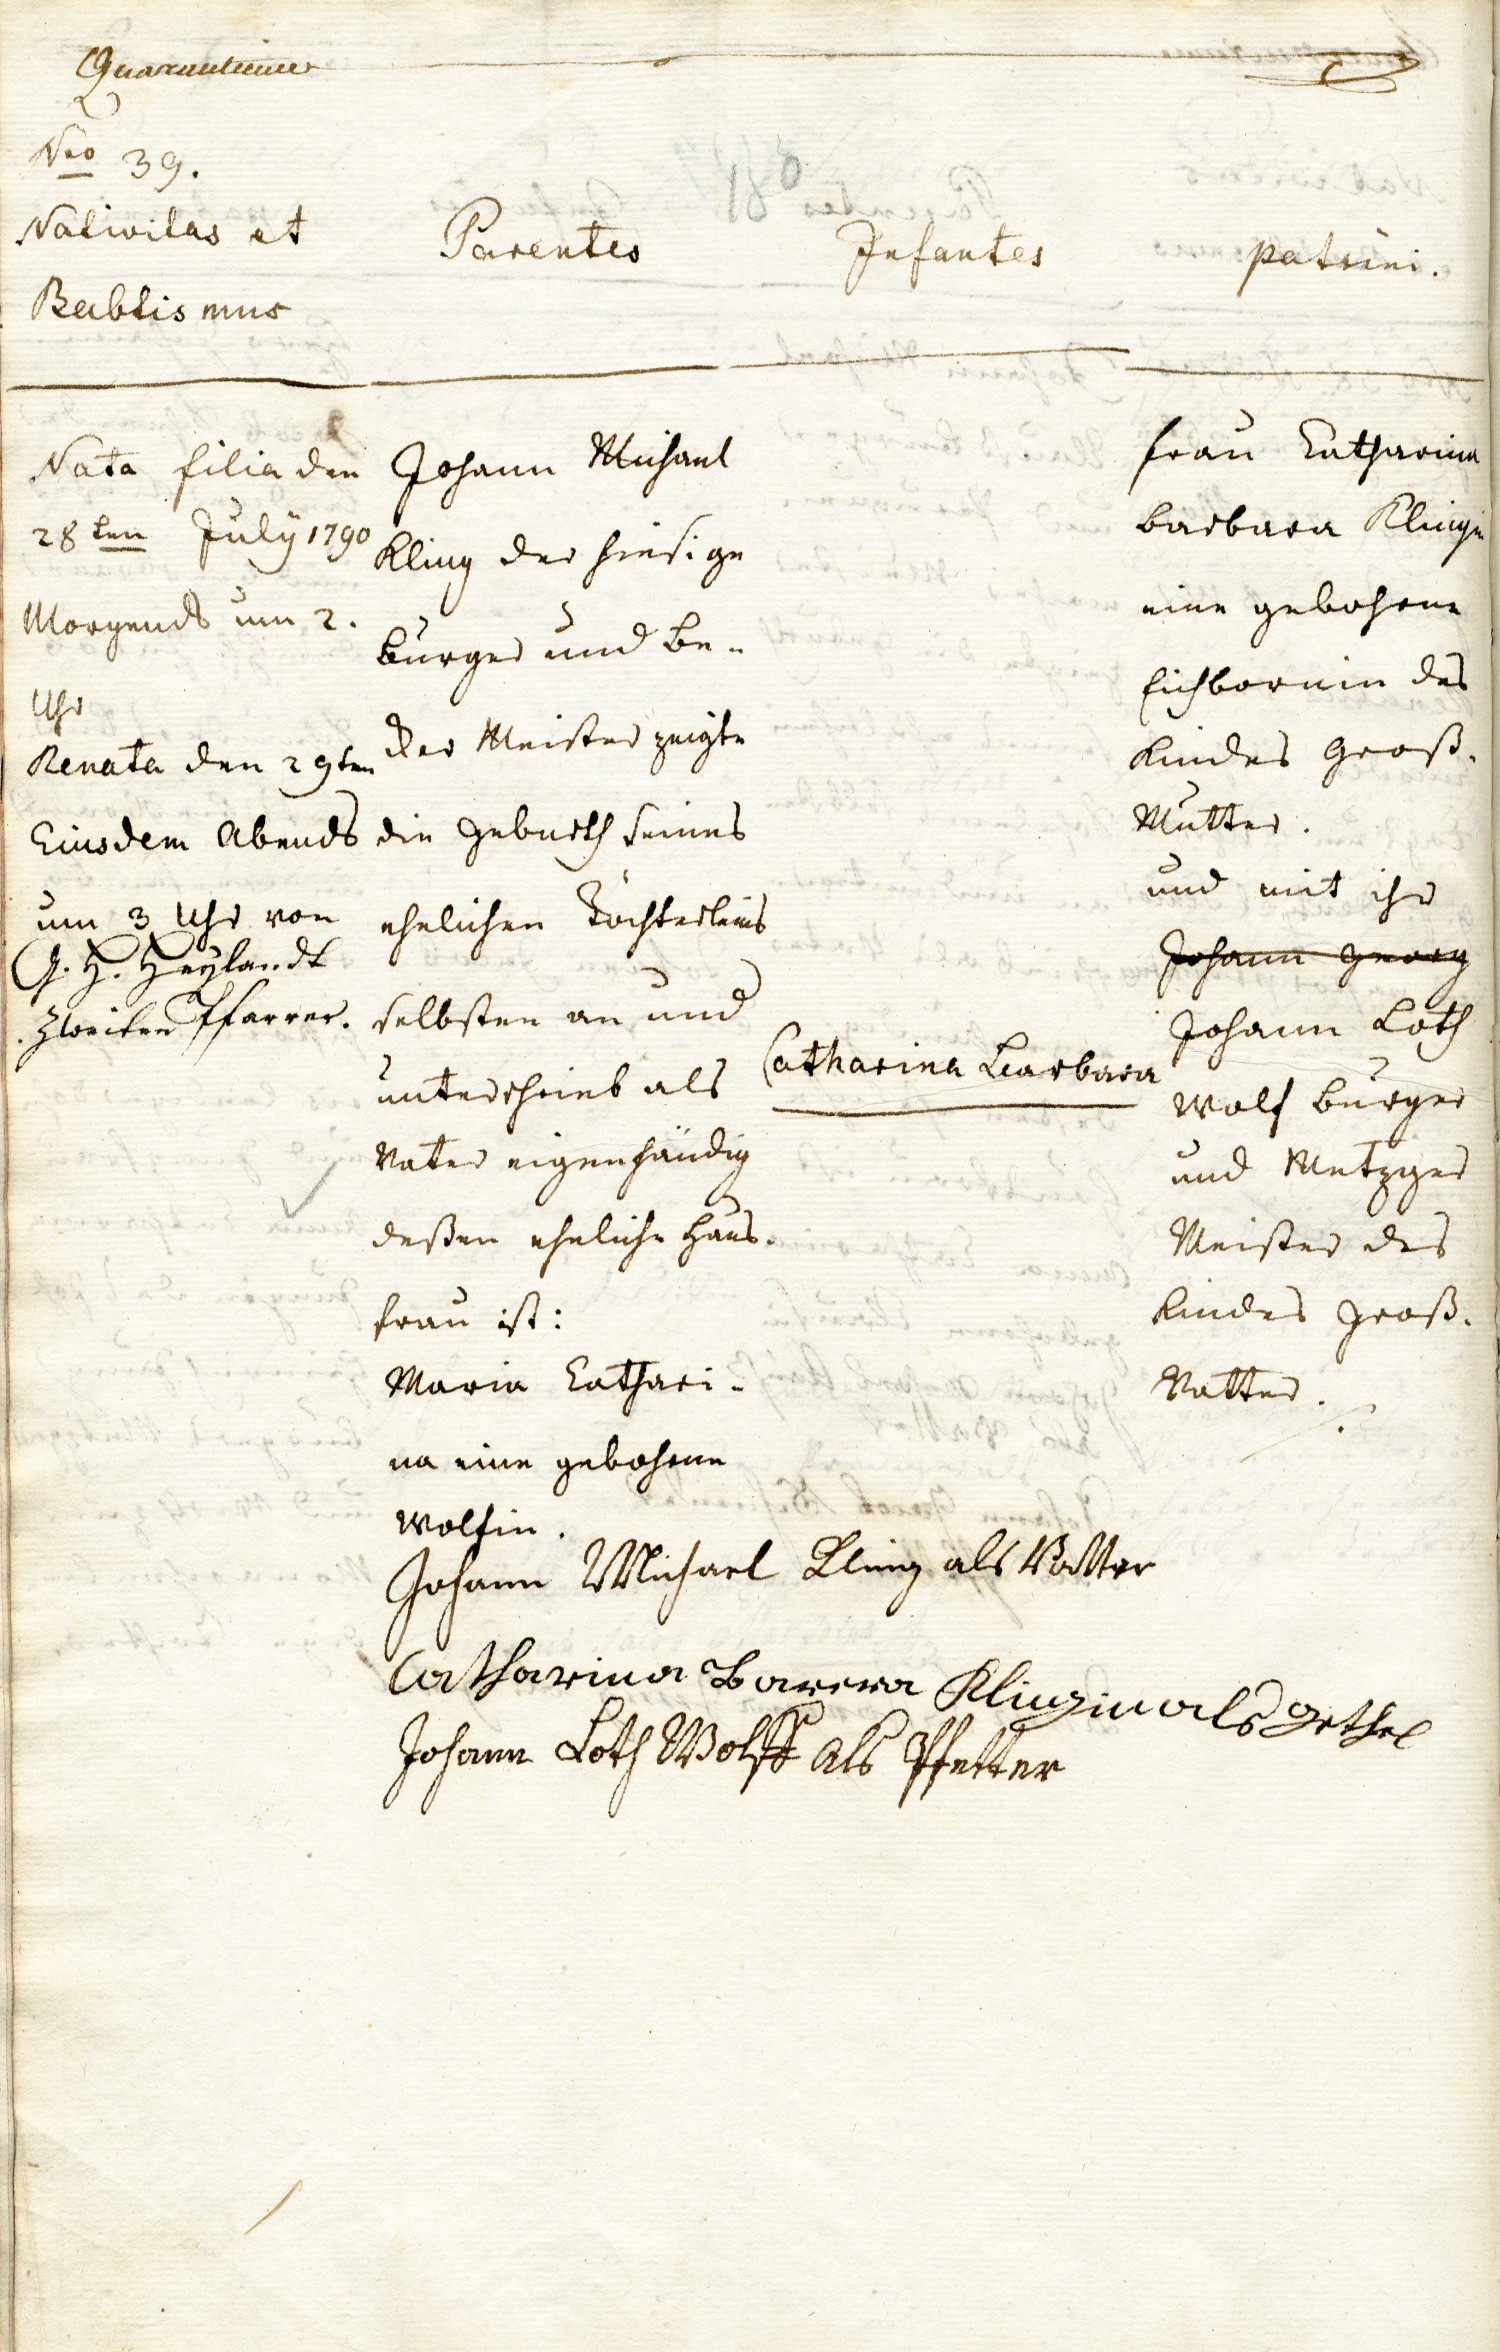 Quarantieme
Nro 39.
Nativitas et
Babtismus
Parentes
Infantes
patrini.
Nata filia den
28ten July 1790
Morgends um 2.
Uhr
Renata den 29ten
Eiusdem Abends
um 3 Uhr von
G. H. Heylandt
Zweiten Pfarrer.
Johann Michael
Kling der hiesige
burger und Be-
cker Meister zeigte
die geburth seines
ehelichen Töchterleins
selbsten an und
unterschrieb als
Vater eigenhändig
deßen eheliche Haus-
frau ist:
Maria Cathari-
na eine gebohrne
Wolfin.
Catharina Barbara
frau Catharina
barbara Klingin
eine gebohrne
Eichbornin des
Kindes Groß-
Mutter.
und mit ihr
Johann Georg
Johann Loth
Wolf burger
und Metzger
Meister des
Kindes Groß-
Vatter.
Johann Michael Kling als Vatter
Catharina Barera Klingin als gethel
Johann Loth Wolff als Pfetter